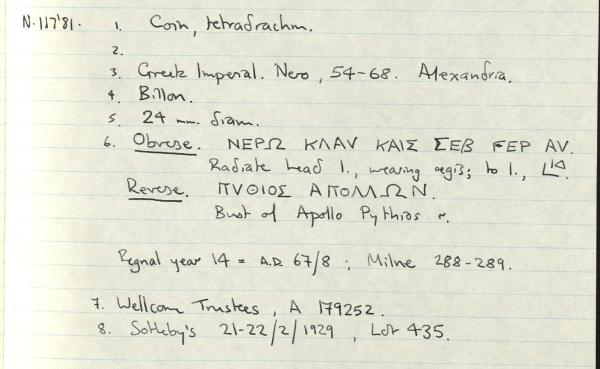 N.117'81. 1. Coin, tetradrachm.
2.
3. Greek Imperial. Nero, 54-68. Alexandria.
4. Billon.
5. 24 mm. diam.
6. Obverse. ΝΕΡΩ ΚΛΑV ΚΑΙΣ ΣΕΒ ΓΕΡ ΑV.
Radiate head l., wearing aegis; to l., LΙΔ.
Reverse. ΠVΘΙΟΣ ΑΠΟΛΛΩΝ.
Bust of Apollo Pythios r.
Regnal year 14 = A.D. 67/8 ; Milne 288-289.
7. Wellcome Trustees, A 179252.
8. Sotheby's 21-22/2/1929, Lot 435.